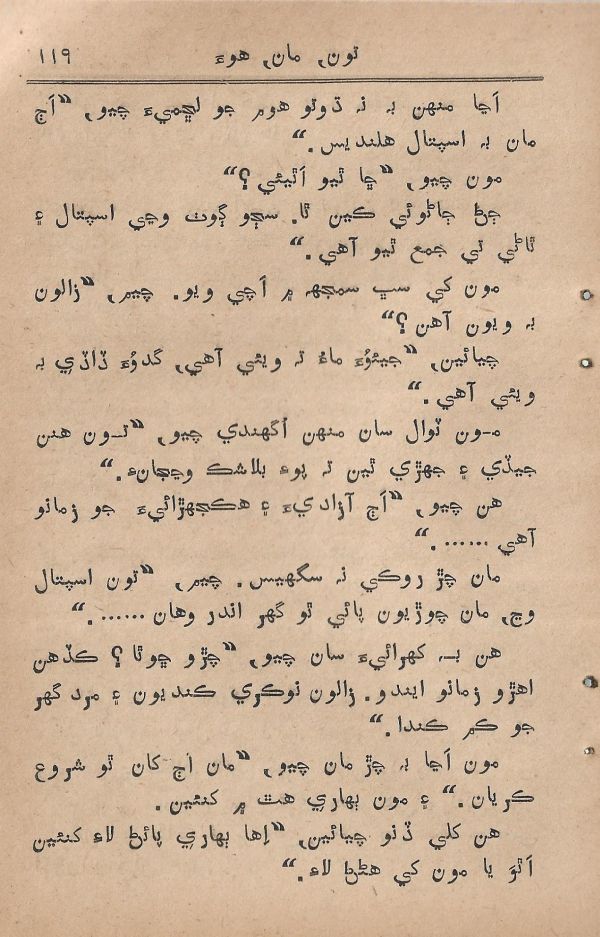 تون، مان، هوءَ ۱۱۹
اَڃا منهن بہ نہ ڌوتو هوم جو لڇميءَ چيو، ”اَڄ
مان بہ اسپتال هلنديس.“
مون چيو، ”ڇا ٿيو اَٿيئي؟“
ڄڻ ڄاڻوئي ڪين ٿا. سڄو ڳوٺ وڃي اسپتال ۽
ٿاڻي تي جمع ٿيو آهي.“
مون کي سڀ سمجهہ ۾ اَچي ويو. چيم، ”زالون
بہ ويون آهن؟“
چيائين، ”جيئوُءَ ماءُ تہ ويئي آهي، گدوُءَ ڏاڏي بہ
ويئي آهي.“
مـون ٽوال سان منهن اُگهندي چيو، ”تـون هنن
جيڏي ۽ جهڙي ٿين تہ پوءِ بلاشڪ وڃجانءِ.“
هن چيو، ”اَڄ آزاديءَ ۽ هڪجهڙائيءَ جو زمانو
آهي .......“
مان چڙ روڪي نہ سگهيس. چيم، ”تون اسپتال
وڃ، مان چوڙيون پائي ٿو گهر اندر وهان .......“
هن بہ کهرائيءَ سان چيو، ”چڙو ڇوٿا؟ ڪڏهن
اهڙو زمانو ايندو. زالون نوڪري ڪنديون ۽ مرد گهر
جو ڪم ڪندا.“
مون اَڃا بہ چڙ مان چيو، ”مان اڄ کان ٿو شروع
ڪريان.“ ۽ مون ٻهاري هٿ ۾ کنئين.
هن کلي ڏنو چيائين، ”اِها ٻهاري پائڻ لاءِ کنئين
اَٿوَ يا مون کي هڻڻ لاءِ.“